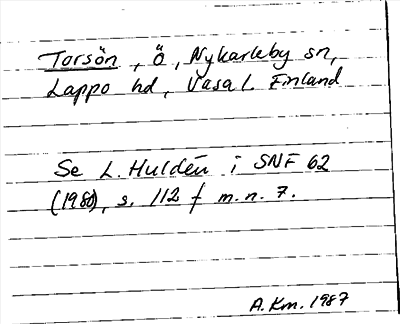 Torsön, ö, Nykarleby sn,
Lappo hd, Vasa l. Finland
Se L. Huldén i SNF 62
(1980), s. 112 f m. n. 7.
A. Km. 1987